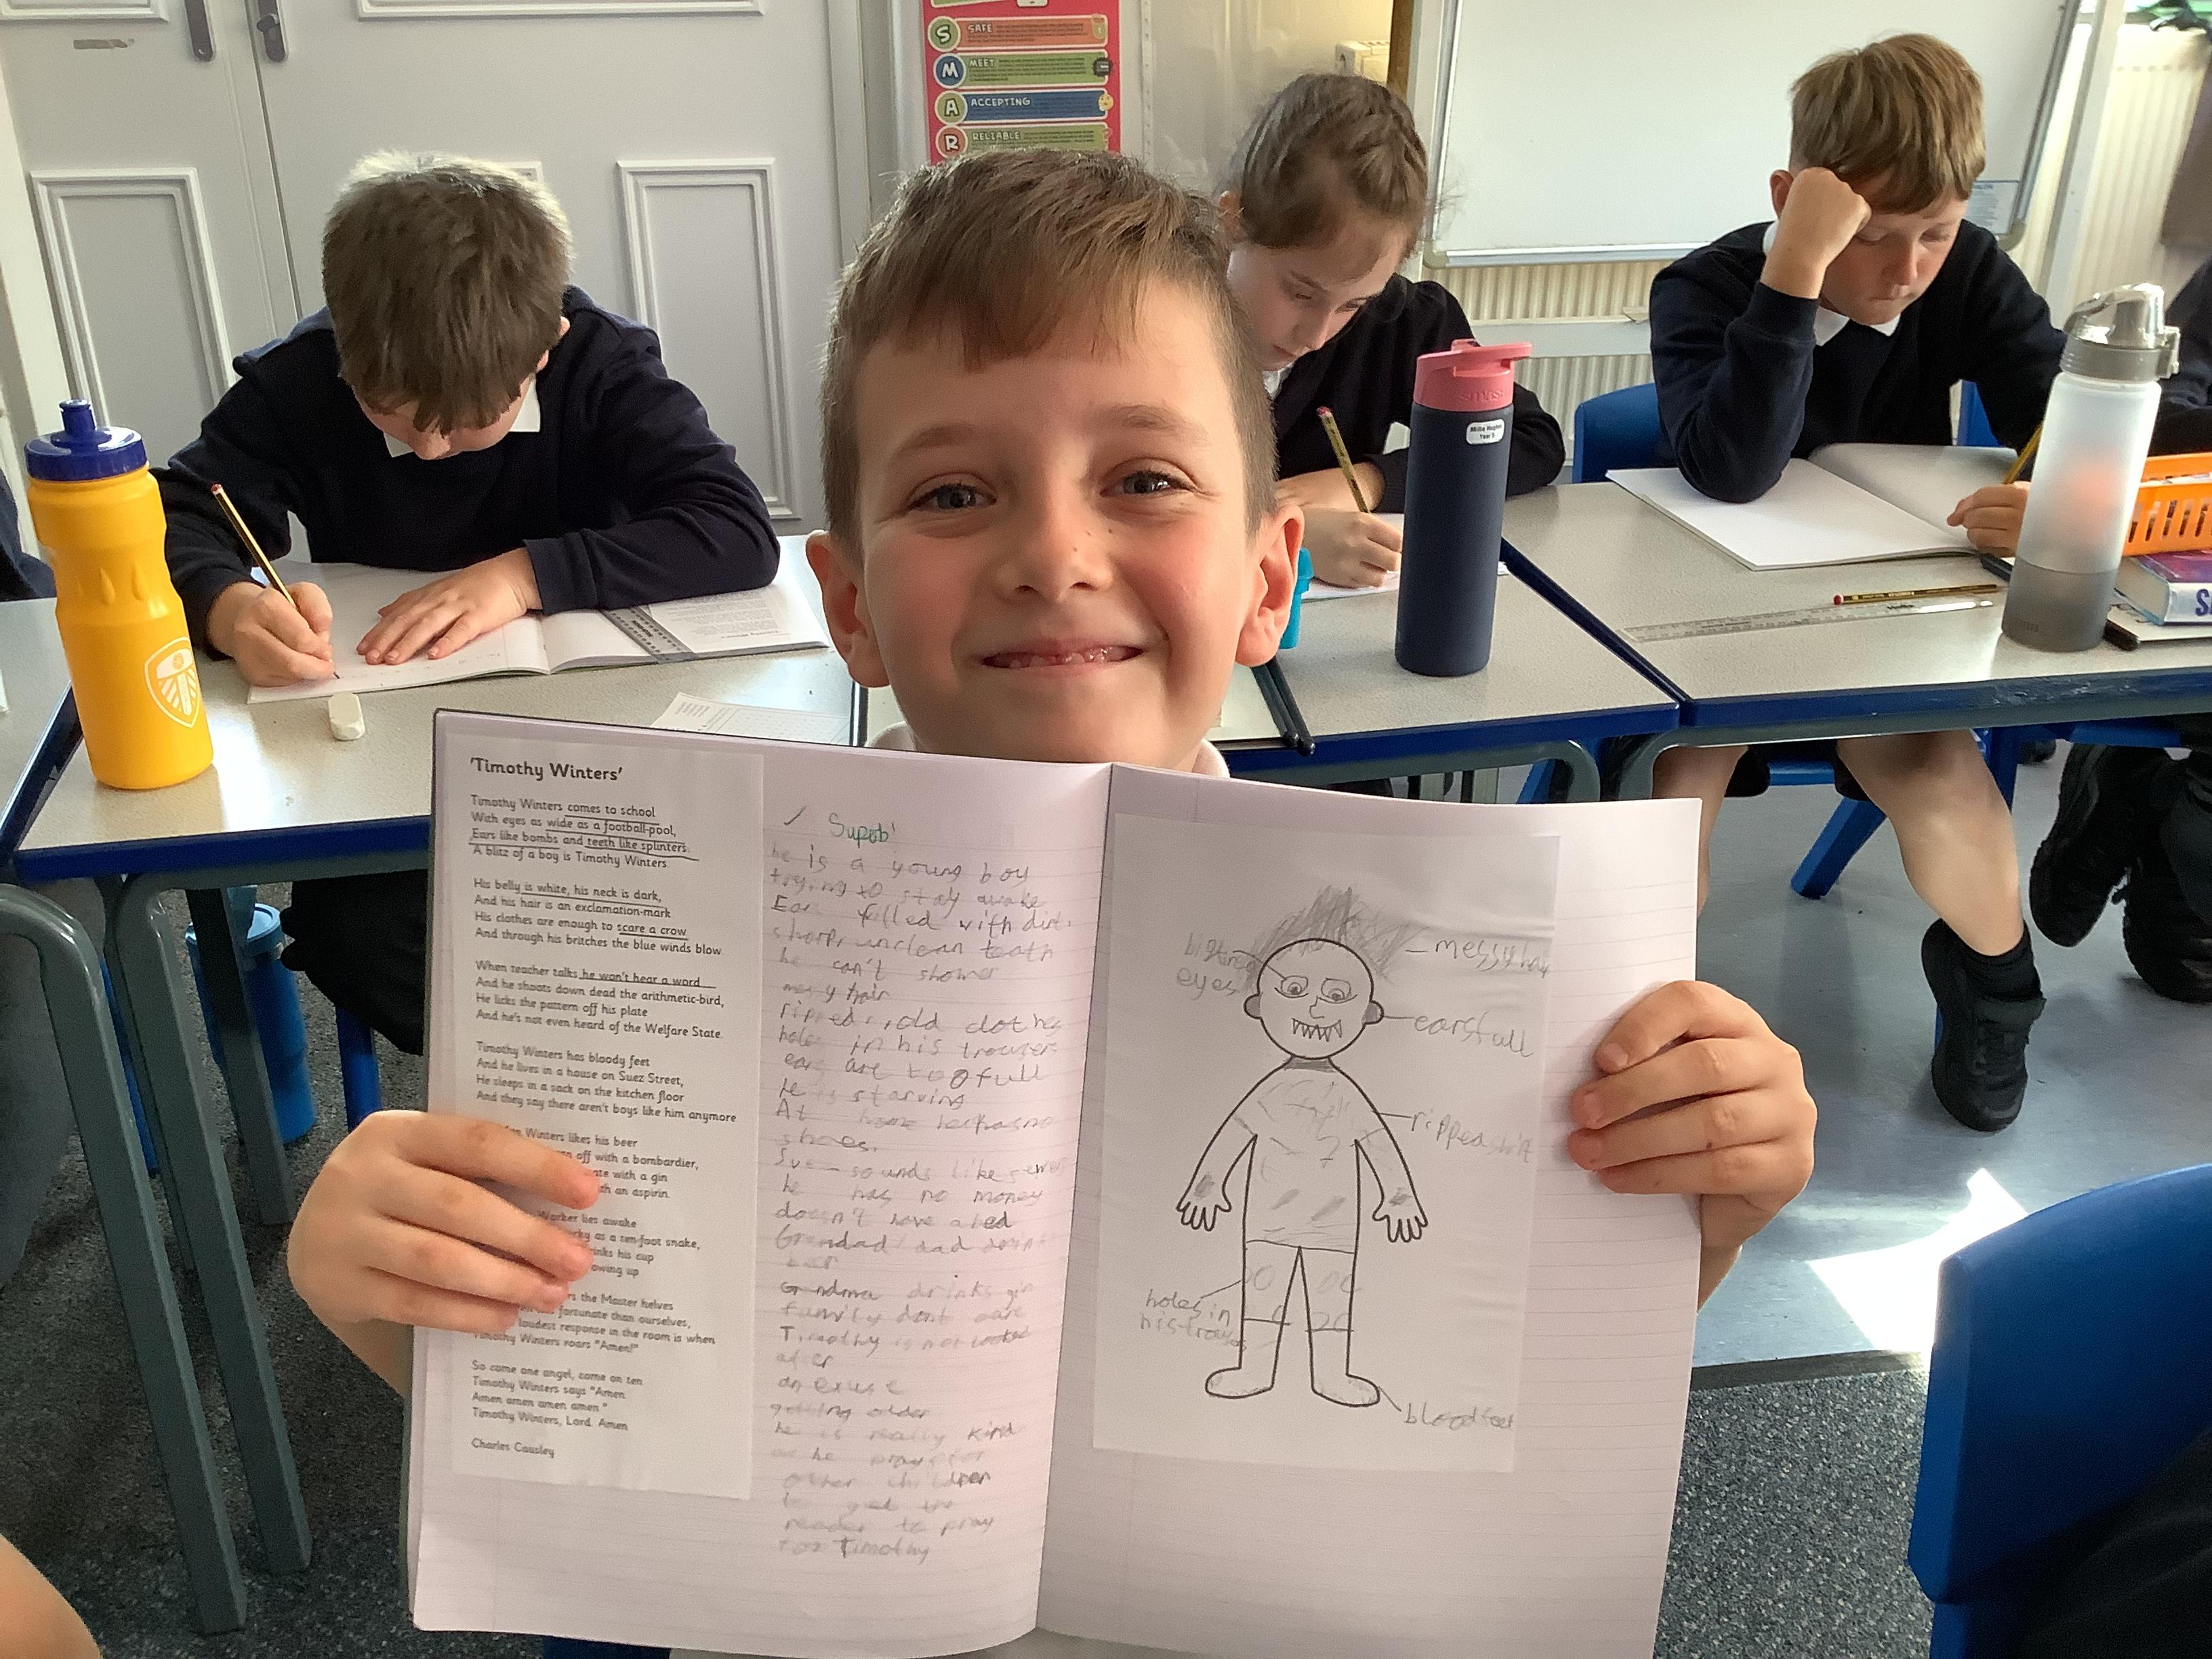 SAFE
MEET
ACCEPTING
RELIABLE
smash
Year 5
'Timothy Winters'
Timothy Winters comes to school
With eyes as wide as a football-pool,
Ears like bombs and teeth like splinters:
A blitz of a boy is Timothy Winters.
His belly is white, his neck is dark,
And his hair is an exclamation-mark.
His clothes are enough to scare a crow
And through his britches the blue winds blow.
When teacher talks he won't hear a word
And he shoots down dead the arithmetic-bird,
He licks the pattern off his plate
And he's not even heard of the Welfare State.
Timothy Winters has bloody feet
And he lives in a house on Suez Street,
He sleeps in a sack on the kitchen floor
And they say there aren't boys like him anymore
Winters likes his beer
off with a bombardier,
with a gin
an aspirin.
Worker lies awake
as a ten-foot snake,
his cup
owing up
the Master helves
fortunate than ourselves,
loudest response in the room is when
Timothy Winters roars "Amen!"
So come one angel, come on ten
Timothy Winters says "Amen
Amen amen amen amen."
Timothy Winters, Lord. Amen
Charles Causley
✓ Suberb
he is a young boy
trying to stay awake
Ear filled with dirt.
sharp, unclean teeth
he can't shower
messy hair
ripped, old clothes
holes in his trousers
ears are too full
he is starving
At home he has no
shoes.
sounds like sewer
he has no money
doesn't have a bed
Grandad dad drink
beer
Grandma drinks gin
family dont care
Timothy is not looked
after
an exuse
getting older
he is really kind
as he prays for
other children
to get the
reader to pray
for Timothy
big tired
eyes
messy hair
ears full
ripped shirt
holes in
his trousers
blood feet